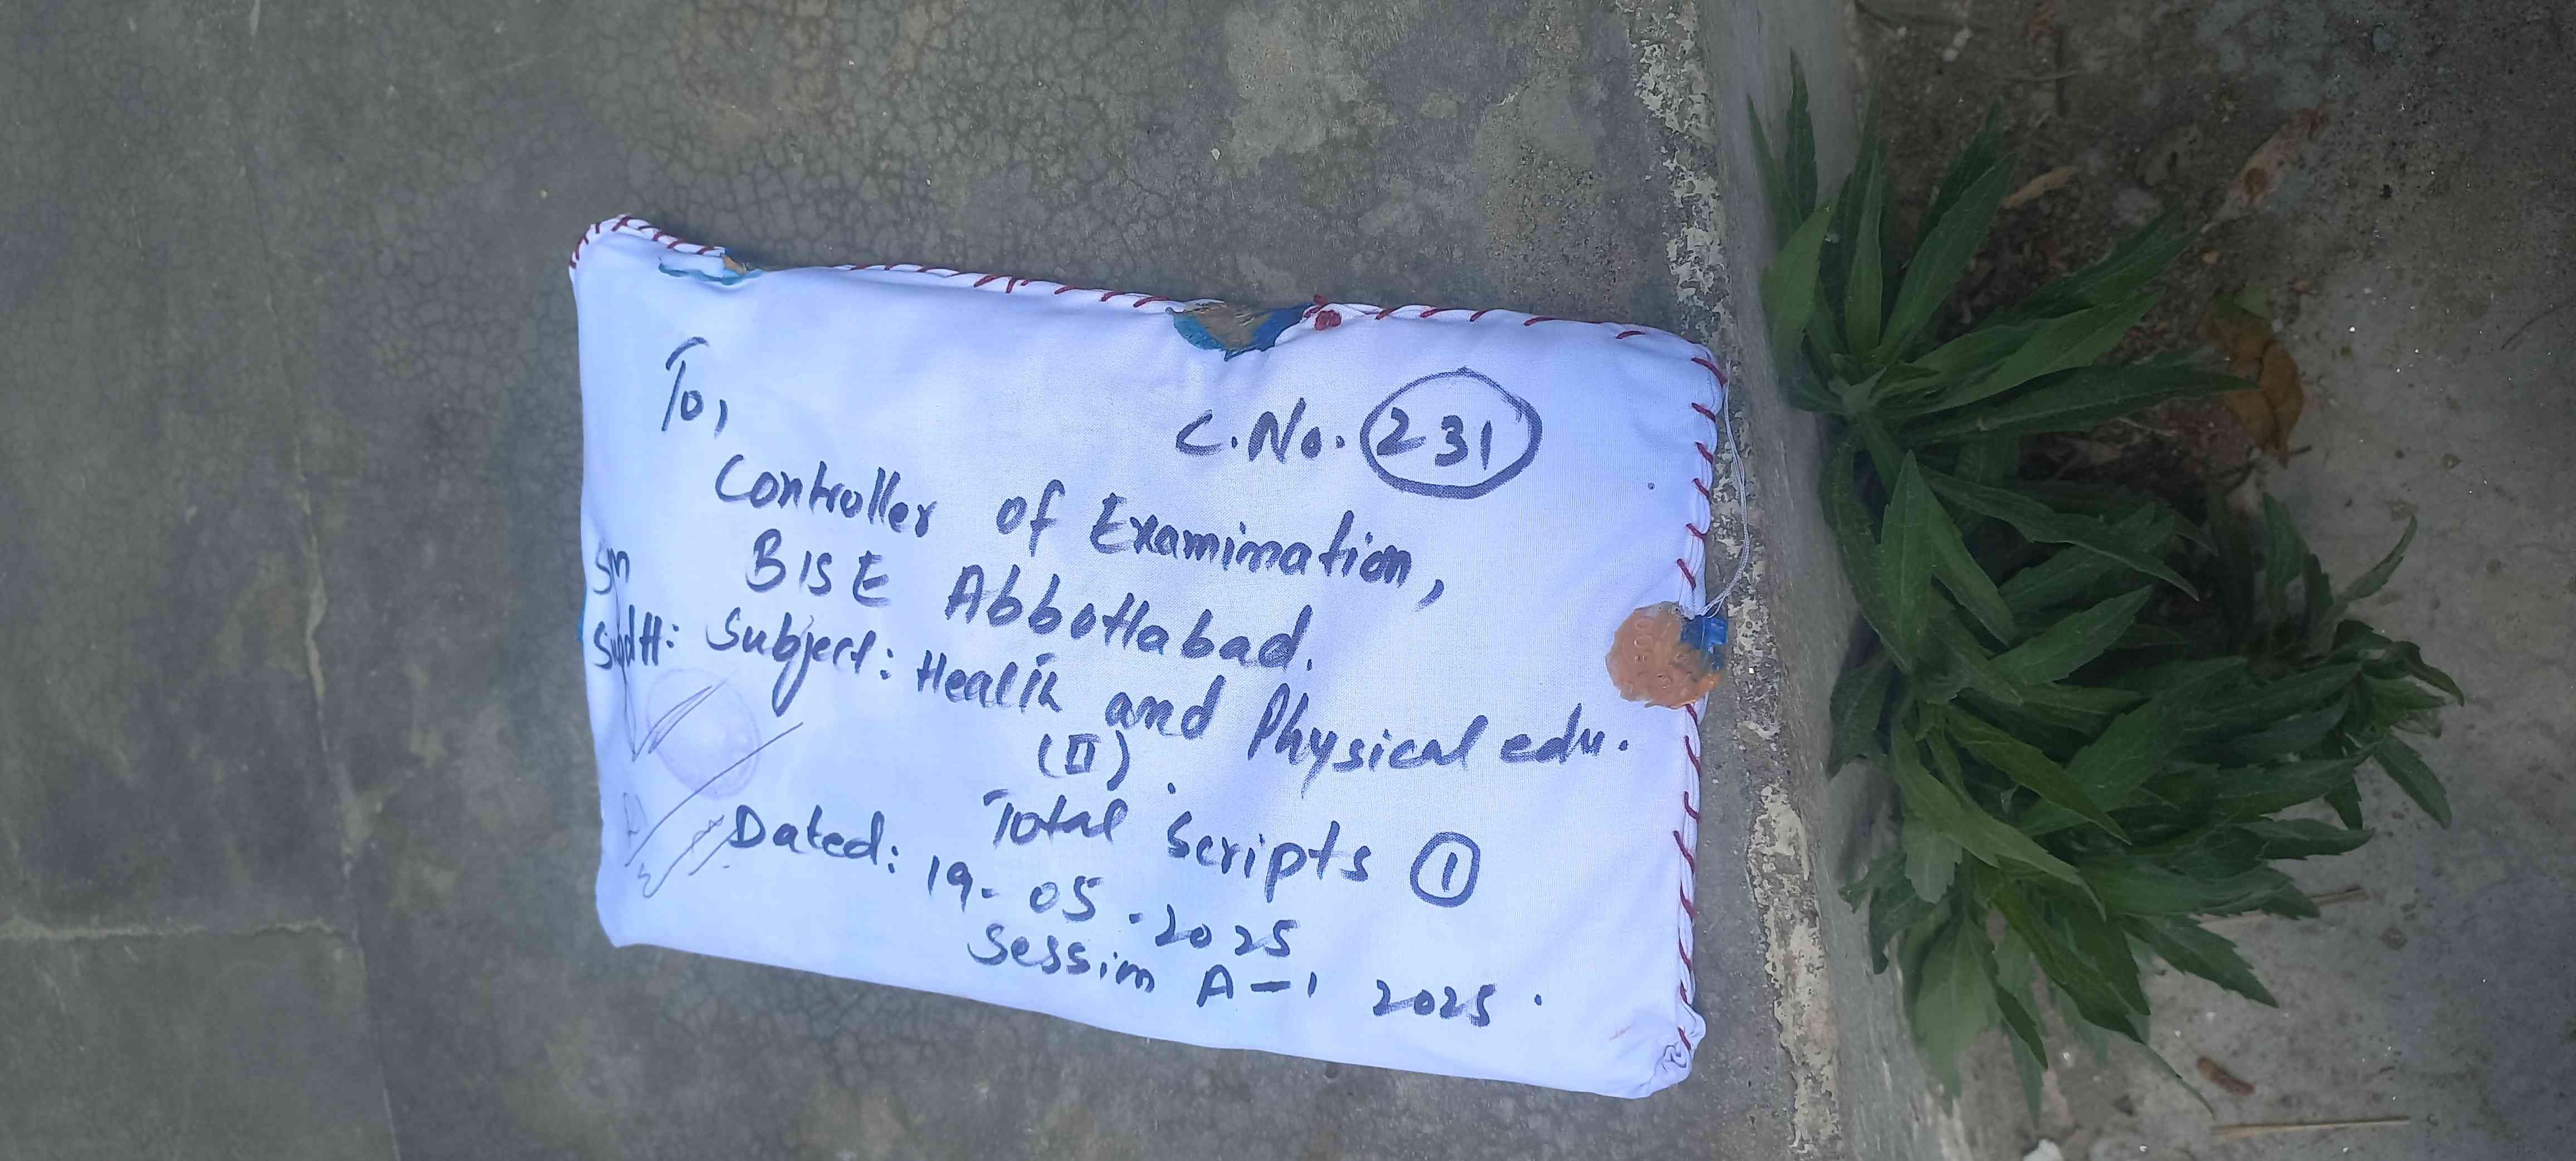 To,
C.No. 231
Controller of Examination,
BISE Abbottabad.
Subject: Health and Physical edu.
(II).
Total Scripts 1
Dated: 19-05-2025
Session A-1 2025.
Supdtt: